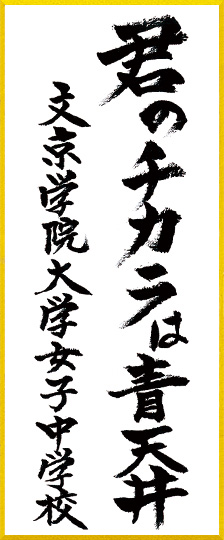 君のチカラは青天井
文京学院大学女子中学校